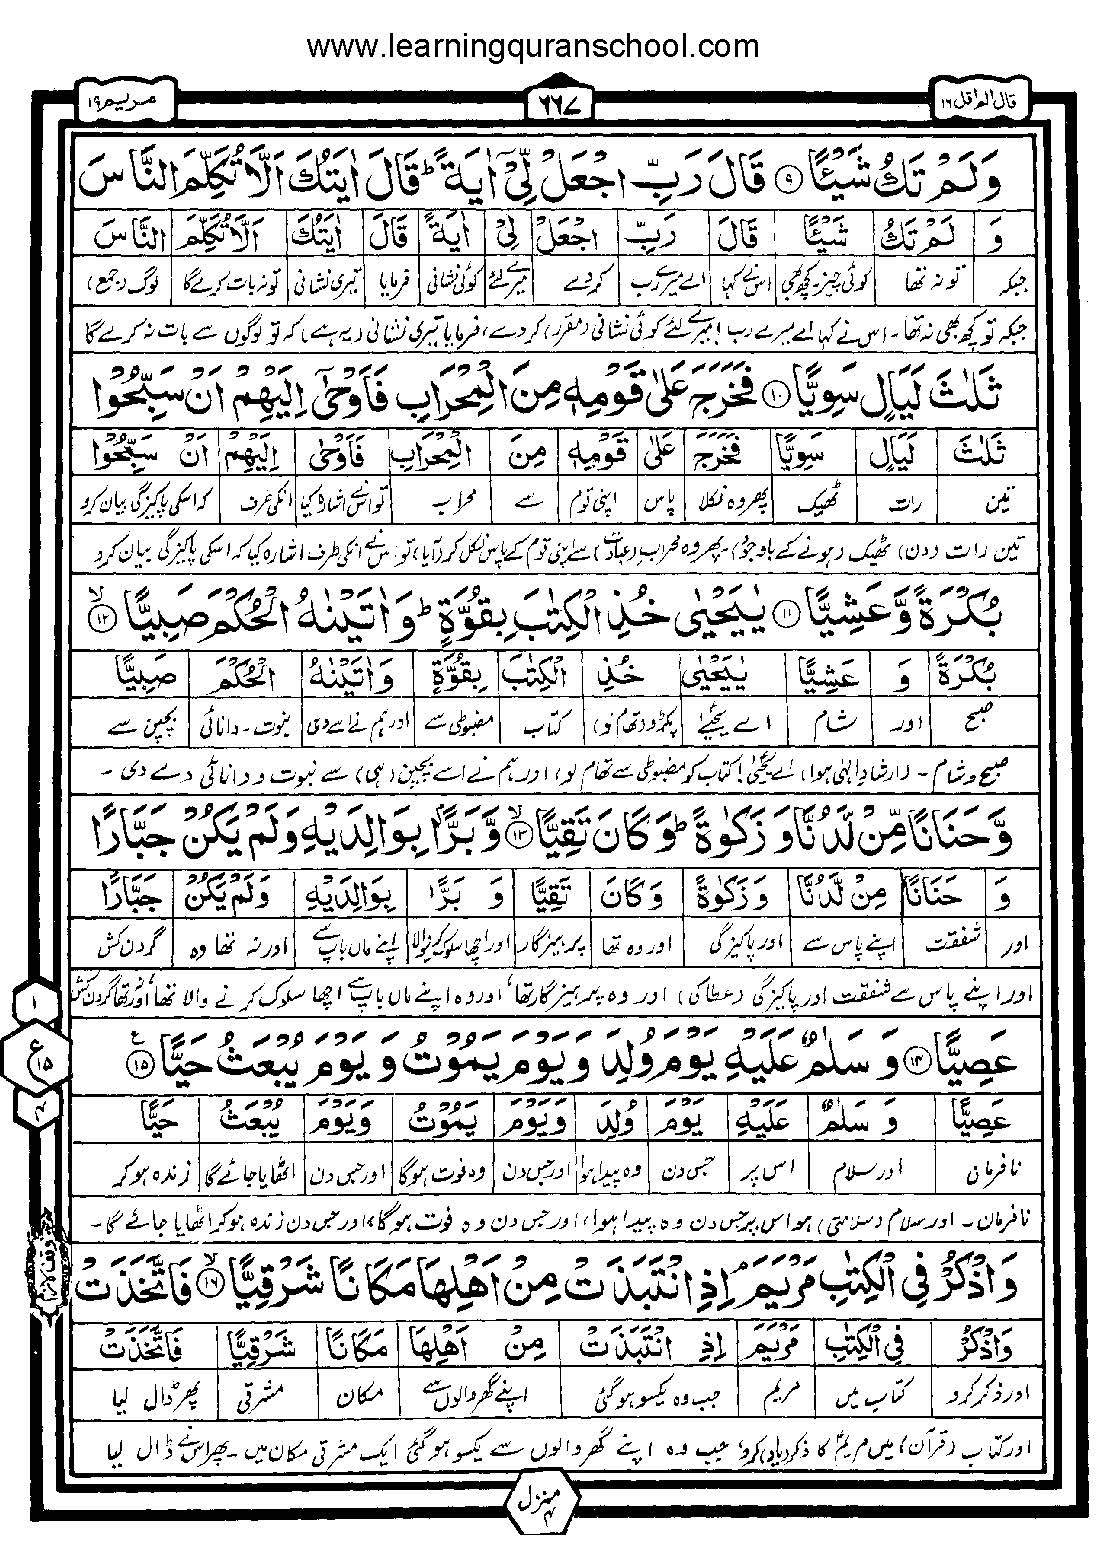 www.learningquranschool.com
قال الم اقل ١٦
٦٦٧
مريم ١٩
وَلَمْ تَكُ شَيْـًٔا ۹ قَالَ رَبِّ اجْعَلْ لِّيْٓ اٰيَةً ؕ قَالَ اٰيَتُكَ اَلَّا تُكَلِّمَ النَّاسَ
وَ لَمْ تَكُ شَيْـًٔا قَالَ رَبِّ اجْعَلْ لِّيْ اٰيَةً قَالَ اٰيَتُكَ اَلَّا تُكَلِّمَ النَّاسَ
جبکہ تو نہ تھا کوئی چیز۔کچھ بھی اس نے کہا اے میرے رب کر دے میرے لئے کوئی نشانی فرمایا تیری نشانی تو نہ بات کرے گا لوگ (جمع)
جبکہ تو کچھ بھی نہ تھا۔ اس نے کہا اے میرے رب! میرے لئے کوئی نشانی (مقرر) کر دے، فرمایا تیری نشانی (یہ ہے) کہ تو لوگوں سے بات نہ کرے گا
ثَلٰثَ لَيَالٍ سَوِيًّا ۱۰ فَخَرَجَ عَلٰى قَوْمِهٖ مِنَ الْمِحْرَابِ فَاَوْحٰٓى اِلَيْهِمْ اَنْ سَبِّحُوْا
ثَلٰثَ لَيَالٍ سَوِيًّا فَخَرَجَ عَلٰى قَوْمِهٖ مِنَ الْمِحْرَابِ فَاَوْحٰى اِلَيْهِمْ اَنْ سَبِّحُوْا
تین رات ٹھیک پھر وہ نکلا پاس اپنی قوم سے محراب تو اس نے اشارہ کیا انکی طرف کہ اسکی پاکیزگی بیان کرو
تین رات (دن) ٹھیک (ہونے کے باوجود)۔ پھر وہ محراب (عبادت) سے اپنی قوم کے پاس نکل کر (آیا) تو اس نے انکی طرف اشارہ کیا کہ اسکی پاکیزگی بیان کرو
بُكْرَةً وَّعَشِيًّا ۱۱ يٰيَحْيٰى خُذِ الْكِتٰبَ بِقُوَّةٍ ؕ وَاٰتَيْنٰهُ الْحُكْمَ صَبِيًّا ۙ ۱۲
بُكْرَةً وَ عَشِيًّا يٰيَحْيٰى خُذِ الْكِتٰبَ بِقُوَّةٍ وَاٰتَيْنٰهُ الْحُكْمَ صَبِيًّا
صبح اور شام اے یحیٰی پکڑو (تھام لو) کتاب مضبوطی سے اور ہم نے اسے دی نبوت۔دانائی بچپن سے
صبح و شام۔ (ارشاد الٰہی ہوا) اے یحیٰی! کتاب کو مضبوطی سے تھام لو، اور ہم نے اسے بچپن (ہی) سے نبوت و دانائی دے دی۔
وَّحَنَانًا مِّنْ لَّدُنَّا وَزَكٰوةً ؕ وَكَانَ تَقِيًّا ۙ ۱۳ وَّبَرًّۢا بِوَالِدَيْهِ وَلَمْ يَكُنْ جَبَّارًا
وَ حَنَانًا مِنْ لَّدُنَّا وَزَكٰوةً وَكَانَ تَقِيًّا وَ بَرًّا بِوَالِدَيْهِ وَلَمْ يَكُنْ جَبَّارًا
اور شفقت اپنے پاس سے اور پاکیزگی اور وہ تھا پرہیزگار اور اچھا سلوک کرنیوالا اپنے ماں باپ سے اور نہ تھا وہ گردن کش
اور اپنے پاس سے شفقت اور پاکیزگی (عطا کی) اور وہ پرہیزگار تھا، اور وہ اپنے ماں باپ سے اچھا سلوک کرنے والا تھا، اور نہ تھا گردن کش
عَصِيًّا ۱۴ وَسَلٰمٌ عَلَيْهِ يَوْمَ وُلِدَ وَيَوْمَ يَمُوْتُ وَيَوْمَ يُبْعَثُ حَيًّا ع ۱۵
عَصِيًّا وَ سَلٰمٌ عَلَيْهِ يَوْمَ وُلِدَ وَيَوْمَ يَمُوْتُ وَيَوْمَ يُبْعَثُ حَيًّا
نافرمانی اور سلام اس پر جس دن وہ پیدا ہوا اور جس دن وہ فوت ہوگا اور جس دن اٹھایا جائے گا زندہ ہو کر
نافرمان۔ اور سلام (سلامتی) ہو اس پر جس دن وہ پیدا ہوا، اور جس دن وہ فوت ہوگا، اور جس دن زندہ ہو کر اٹھایا جائے گا۔
وَاذْكُرْ فِى الْكِتٰبِ مَرْيَمَ ۘ اِذِ انْتَبَذَتْ مِنْ اَهْلِهَا مَكَانًا شَرْقِيًّا ۙ ۱۶ فَاتَّخَذَتْ
وَاذْكُرْ فِى الْكِتٰبِ مَرْيَمَ اِذِ انْتَبَذَتْ مِنْ اَهْلِهَا مَكَانًا شَرْقِيًّا فَاتَّخَذَتْ
اور ذکر کرو کتاب میں مریم جب وہ یکسو ہوگئی اپنے گھر والوں سے مکان مشرقی پھر ڈال لیا
اور کتاب (قرآن) میں مریم کا ذکر (یاد) کرو، جب وہ اپنے گھر والوں سے یکسو ہوگئی ایک مشرقی مکان میں۔ پھر اس نے ڈال لیا
۱
ع
۱۵
منزل ۴